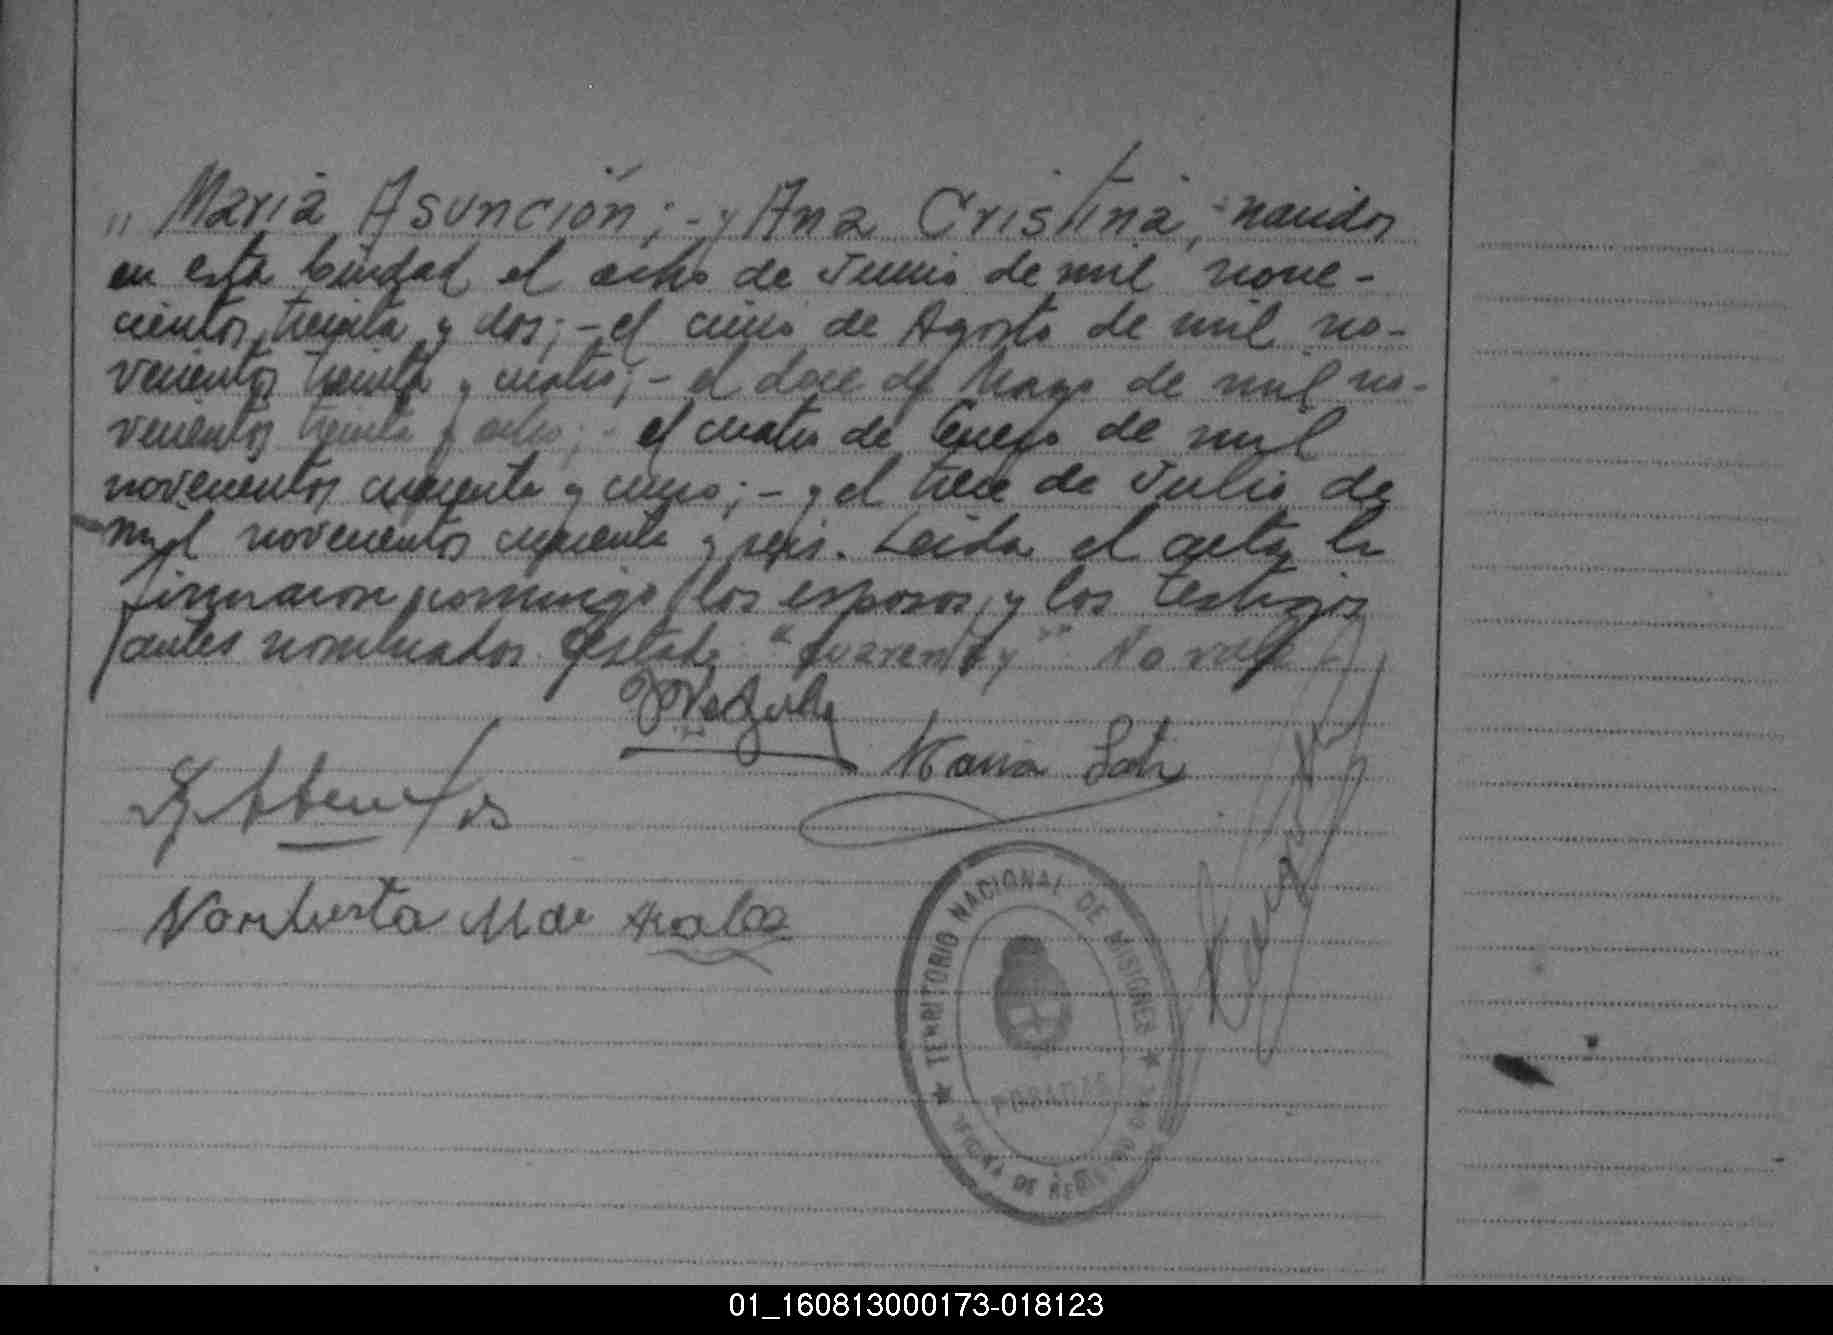 " María Asunción; - y Ana Cristina, nacidos
en esta Ciudad el ocho de Junio de mil nove-
cientos treinta y dos; - el cinco de Agosto de mil no-
vecientos treinta y cuatro; - el doce de Mayo de mil no-
vecientos treinta y ocho; - el cuatro de Enero de mil
novecientos cincuenta y cinco; - y el trece de Julio de
mil novecientos cincuenta y seis. Leída el acta, la
firmaron conmigo los esposos, y los testigos
antes nombrados. Testado: "cuarenta y" No vale.-
María
Norberta M de
TERRITORIO NACIONAL DE MISIONES
POSADAS
OFICINA DE REGISTRO
01_160813000173-018123